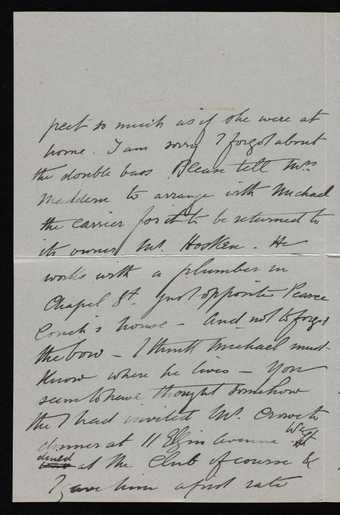 pect so much as if she were at
home. I am sorry I forgot about
the double bass. Please tell Mrs
Maddern to arrange with Michael
the carrier for it to be returned to
its owner Mr. Hosken. He
works with a plumber in
Chapel St. just opposite Pearce
Couch's house - And not to forget
the bow - I think Michael must
know where he lives - You
seem to have thought somehow
the I had invited Mr. to
dinner at 11 Elgin Avenue. We
dined at the Club of course &
I gave him a first rate